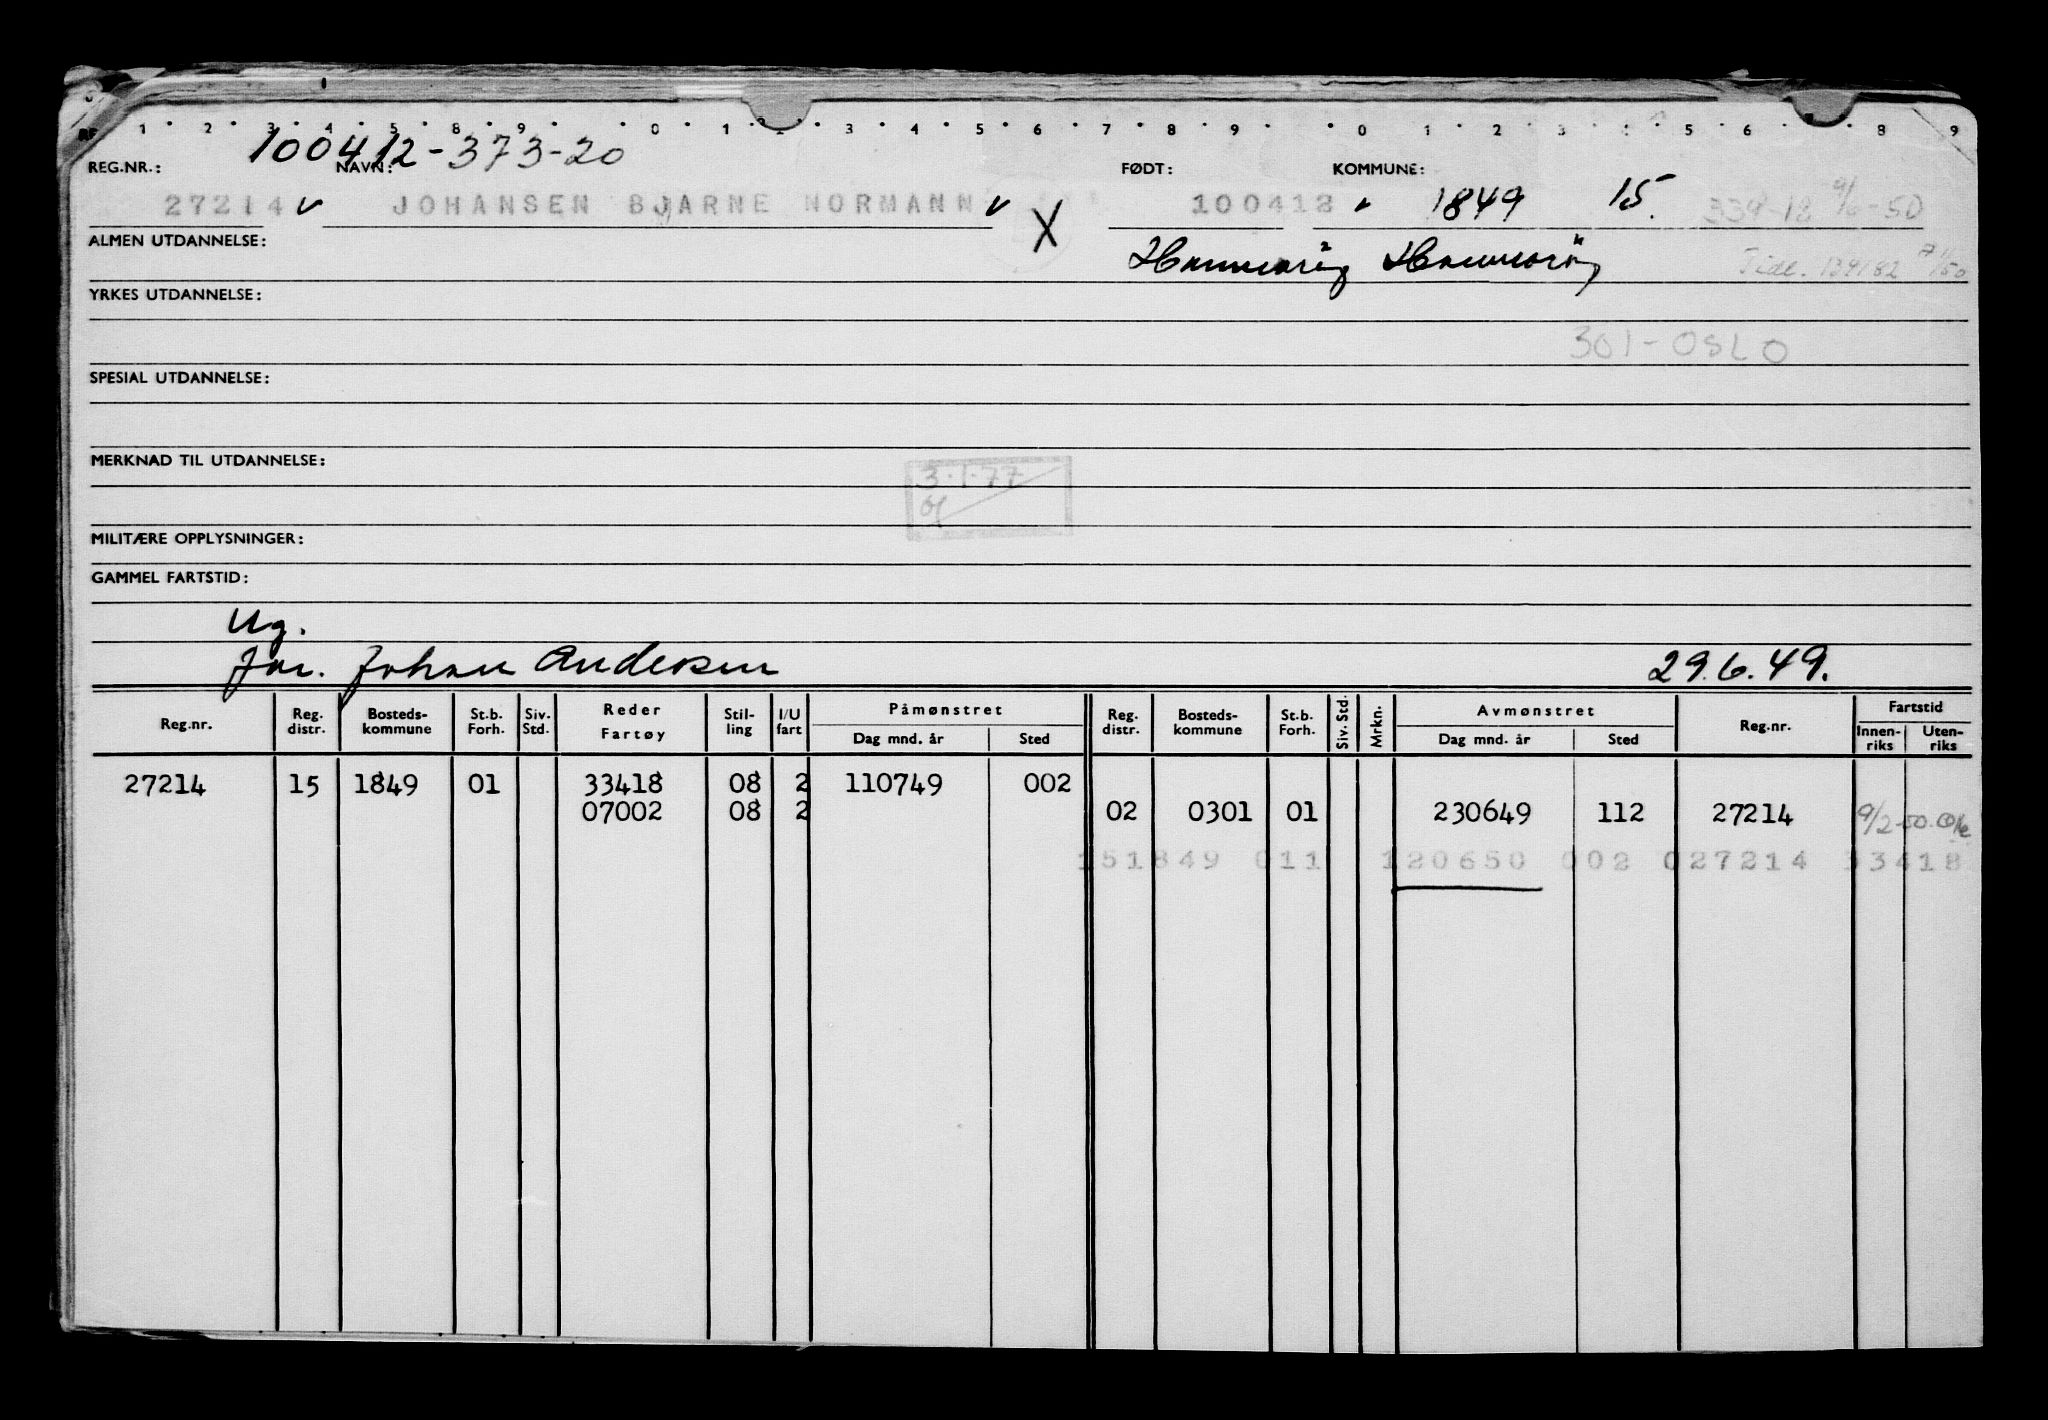 1 2 3 4 5 8 9 0 1 2 3 4 5 6 7 8 9 0 1 2 3 4 5 6 8 9
100412-373-20
REG.NR.: NAVN: FØDT: KOMMUNE:
27214 v JOHANSEN BJARNE NORMANN v X 100412 1849 15. 339-12 9/6-50
ALMEN UTDANNELSE: Hammarøy Hammarøy Tidl. 139182 7/1 50
YRKES UTDANNELSE:
301-OSLO
SPESIAL UTDANNELSE:
MERKNAD TIL UTDANNELSE:
3.1.77
MILITÆRE OPPLYSNINGER:
GAMMEL FARTSTID:
Ug.
Far. Johan Andersen 29.6.49.
Reg.nr. Reg. distr. Bosteds-kommune St.b. Forh. Siv. Std. Reder Fartøy Stil-ling I/U fart Påmønstret Dag mnd. år Sted Reg. distr. Bosteds-kommune St.b. Forh. Siv. Std. Mrkn. Avmønstret Dag mnd. år Sted Reg.nr. Fartstid Innen-riks Uten-riks
27214 15 1849 01 33418 08 2 110749 002
07002 08 2 02 0301 01 230649 112 27214 9/2-50
151849 011 120650 002 027214 33418